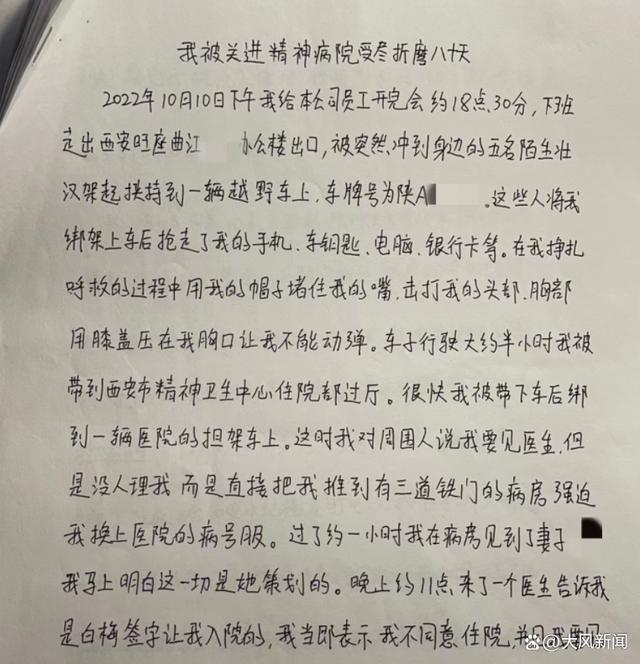 我被关进精神病院受尽折磨八十天
2022年10月10日下午我给本公司员工开完会约18点30分，下班
走出西安旺座曲江 办公楼出口，被突然冲到身边的五名陌生壮
汉架起挟持到一辆越野车上，车牌号为陕A 。这些人将我
绑架上车后抢走了我的手机、车钥匙、电脑、银行卡等。在我挣扎
呼救的过程中用我的帽子堵住我的嘴，击打我的头部、胸部
用膝盖压在我胸口让我不能动弹。车子行驶大约半小时我被
带到西安市精神卫生中心住院部过厅。很快我被带下车后绑
到一辆医院的担架车上。这时我对周围人说我要见医生，但
是没人理我 而是直接把我推到有三道铁门的病房 强迫
我换上医院的病号服。过了约一小时我在病房见到了妻子
我马上明白这一切是她策划的。晚上约11点来了一个医生告诉我
是白梅签字让我入院的，我当即表示我不同意住院，并
大风新闻